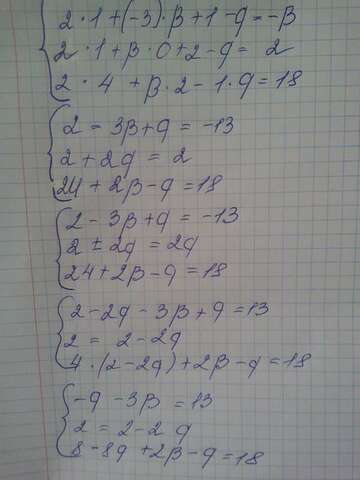 2·1+(-3)·β+1-9=-β
2·1+β·0+2-9= 2
2·4 +β·2-1·9=18
2-3β+9=-13
2+29=2
24+2β-9=18
2-3β+9=-13
2±29=29
24+2β-9=18
2-29-3β+9=13
2= 2-29
4·(2-29)+2β-9=18
-9-3β =13
2=2-29
8-89+2β-9=18